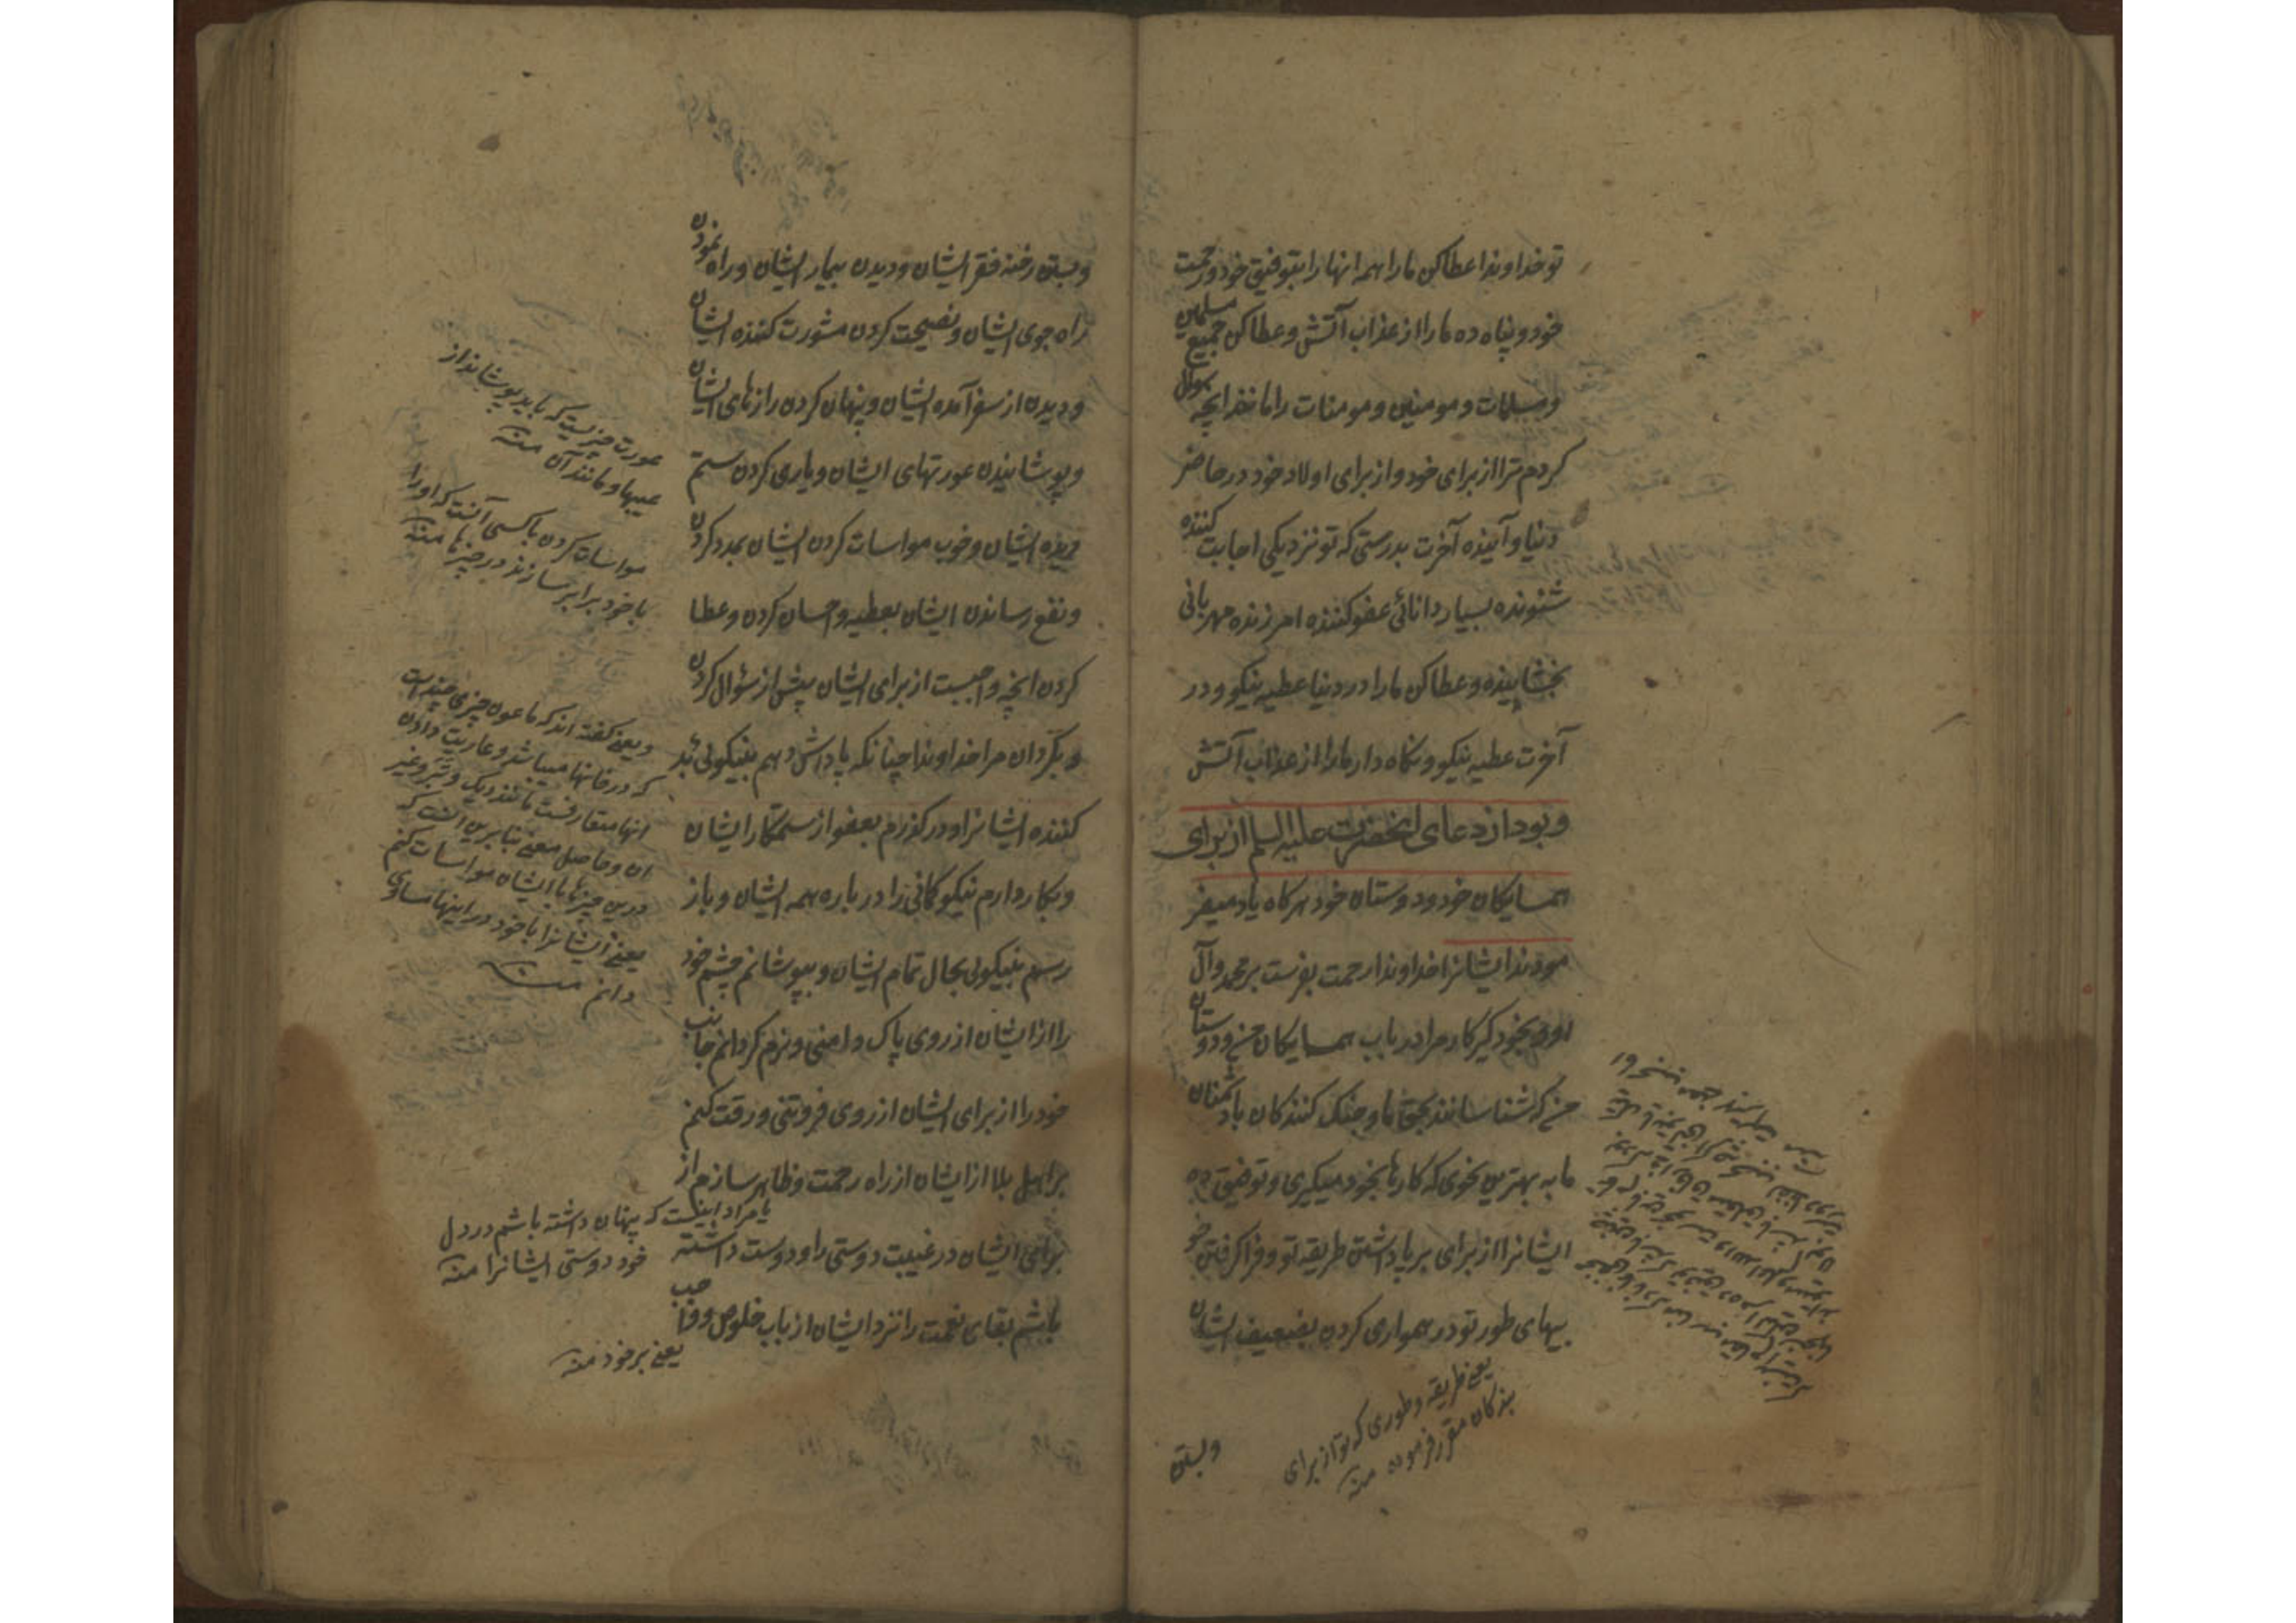 تو خداوندا عطا کن ما را همه انها را بتوفیق خود و رحمت
خود و پناه ده ما را از عذاب آتش و عطا کن جمیع مسلمین
و مسلمات و مومنین و مومنات را مانند آنچه سوال
کردم ترا از برای خود و از برای اولاد خود در حاضر
دنیا و آینده آخرت بدرستی که تو نزدیکی اجابت کننده
شنونده بسیار دانائی عفو کننده امرزنده مهربانی
بخشاینده و عطا کن ما را در دنیا عطیه نیکو و در
آخرت عطیه نیکو و نکاه دار ما را از عذاب آتش
و بود از دعای انحضرت علیه السلم از برای
همسایکان خود و دوستان خود هر کاه یاد میفر
مودند ایشانرا خداوندا رحمت بفرست بر محمد و آل
او و بخود گیر کار مرا در باب همسایکان من و دوستان
من که شناسانند بحق ما و جنک کنندکان با دشمنان
ما به بهترین نحوی که کارها بخود میکیری و توفیق ده
ایشانرا از برای بر پا داشتن طریقه تو و فرا کرفتن خو
بیهای طور تو در همواری کردن بضعیف ایشان
یعنی طریقه و طوری که تو از برای
بندکان مقرر فرموده منه
و بستن
و بستن رخنه فقر ایشان و دیدن بیمار ایشان و راه نمودن
راه جوی ایشان و نصیحت کردن مشورت کننده ایشان
و دیدن از سفر آمده ایشان و پنهان کردن رازهای ایشان
و پوشانیدن عورتهای ایشان و یاری کردن ستم
دیده ایشان و خوب مواسات کردن ایشان بمدد کردن
و نفع رساندن ایشان بعطیه و احسان کردن و عطا
کردن انچه واجبست از برای ایشان پیش از سؤال کردن
و بگردان مرا خداوندا چنانکه پاداش دهم بنیکوئی بد
کننده ایشانرا و در کذرم بعفو از ستمکار ایشان
و بکار دارم نیکو کمانی را در باره همه ایشان و باز
رسم بنیکوئی بحال تمام ایشان و بپوشانم چشم خود
را از ایشان از روی پاک دامنی و نرم کردانم جانب
خود را از برای ایشان از روی فروتنی و رقت کنم
بر اهل بلا از ایشان از راه رحمت و ظاهر سازم از
برای ایشان در غیبت دوستی را و دوست داشته
باشم بقای نعمت را نزد ایشان از باب خلوص و صاحب
عورت چیزیست که باید پوشانید از
عیبها و مانند آن منه
مواسات کردن با کسی آنست که او را
با خود برابر سازند در چیزها منه
و بعضی کفته اند که ماعون چیزی چند است
که در خانها میباشد و عاریت دادن
انها متعارفست مانند دیک و تبر و غیر
ان و حاصل معنی بنابرین انست که
درین چیزها با ایشان مواسات کنم
یعنی ایشانرا با خود در اینها مساوی
دانم منه
یا مراد اینست که پنهان داشته باشم در دل
خود دوستی ایشانرا منه
یعنی بر خود منه